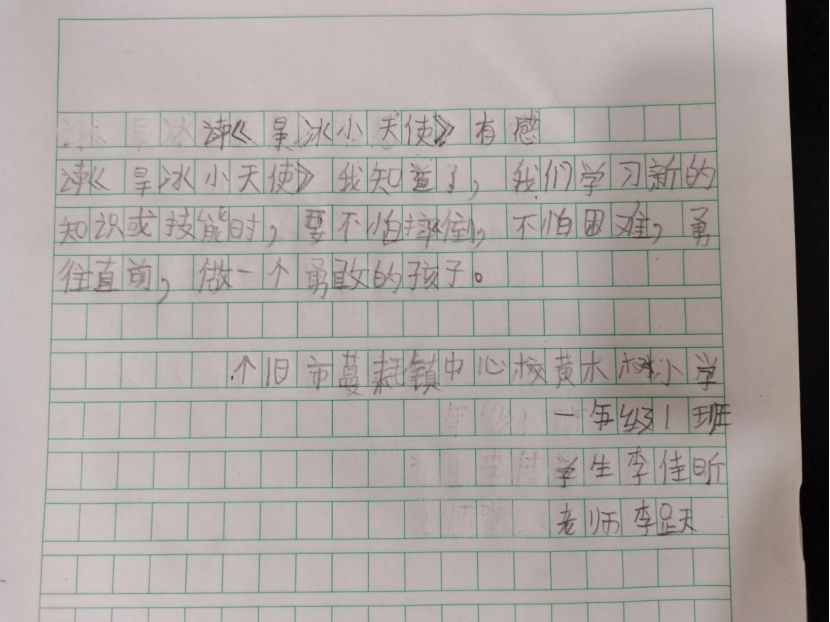 读《旱冰小天使》有感
读《旱冰小天使》我知道了，我们学习新的
知识或技能时，要不怕摔倒，不怕困难，勇
往直前，做一个勇敢的孩子。
个旧市蔓耗镇中心校黄木树小学
一年级1班
学生李佳昕
老师李足天